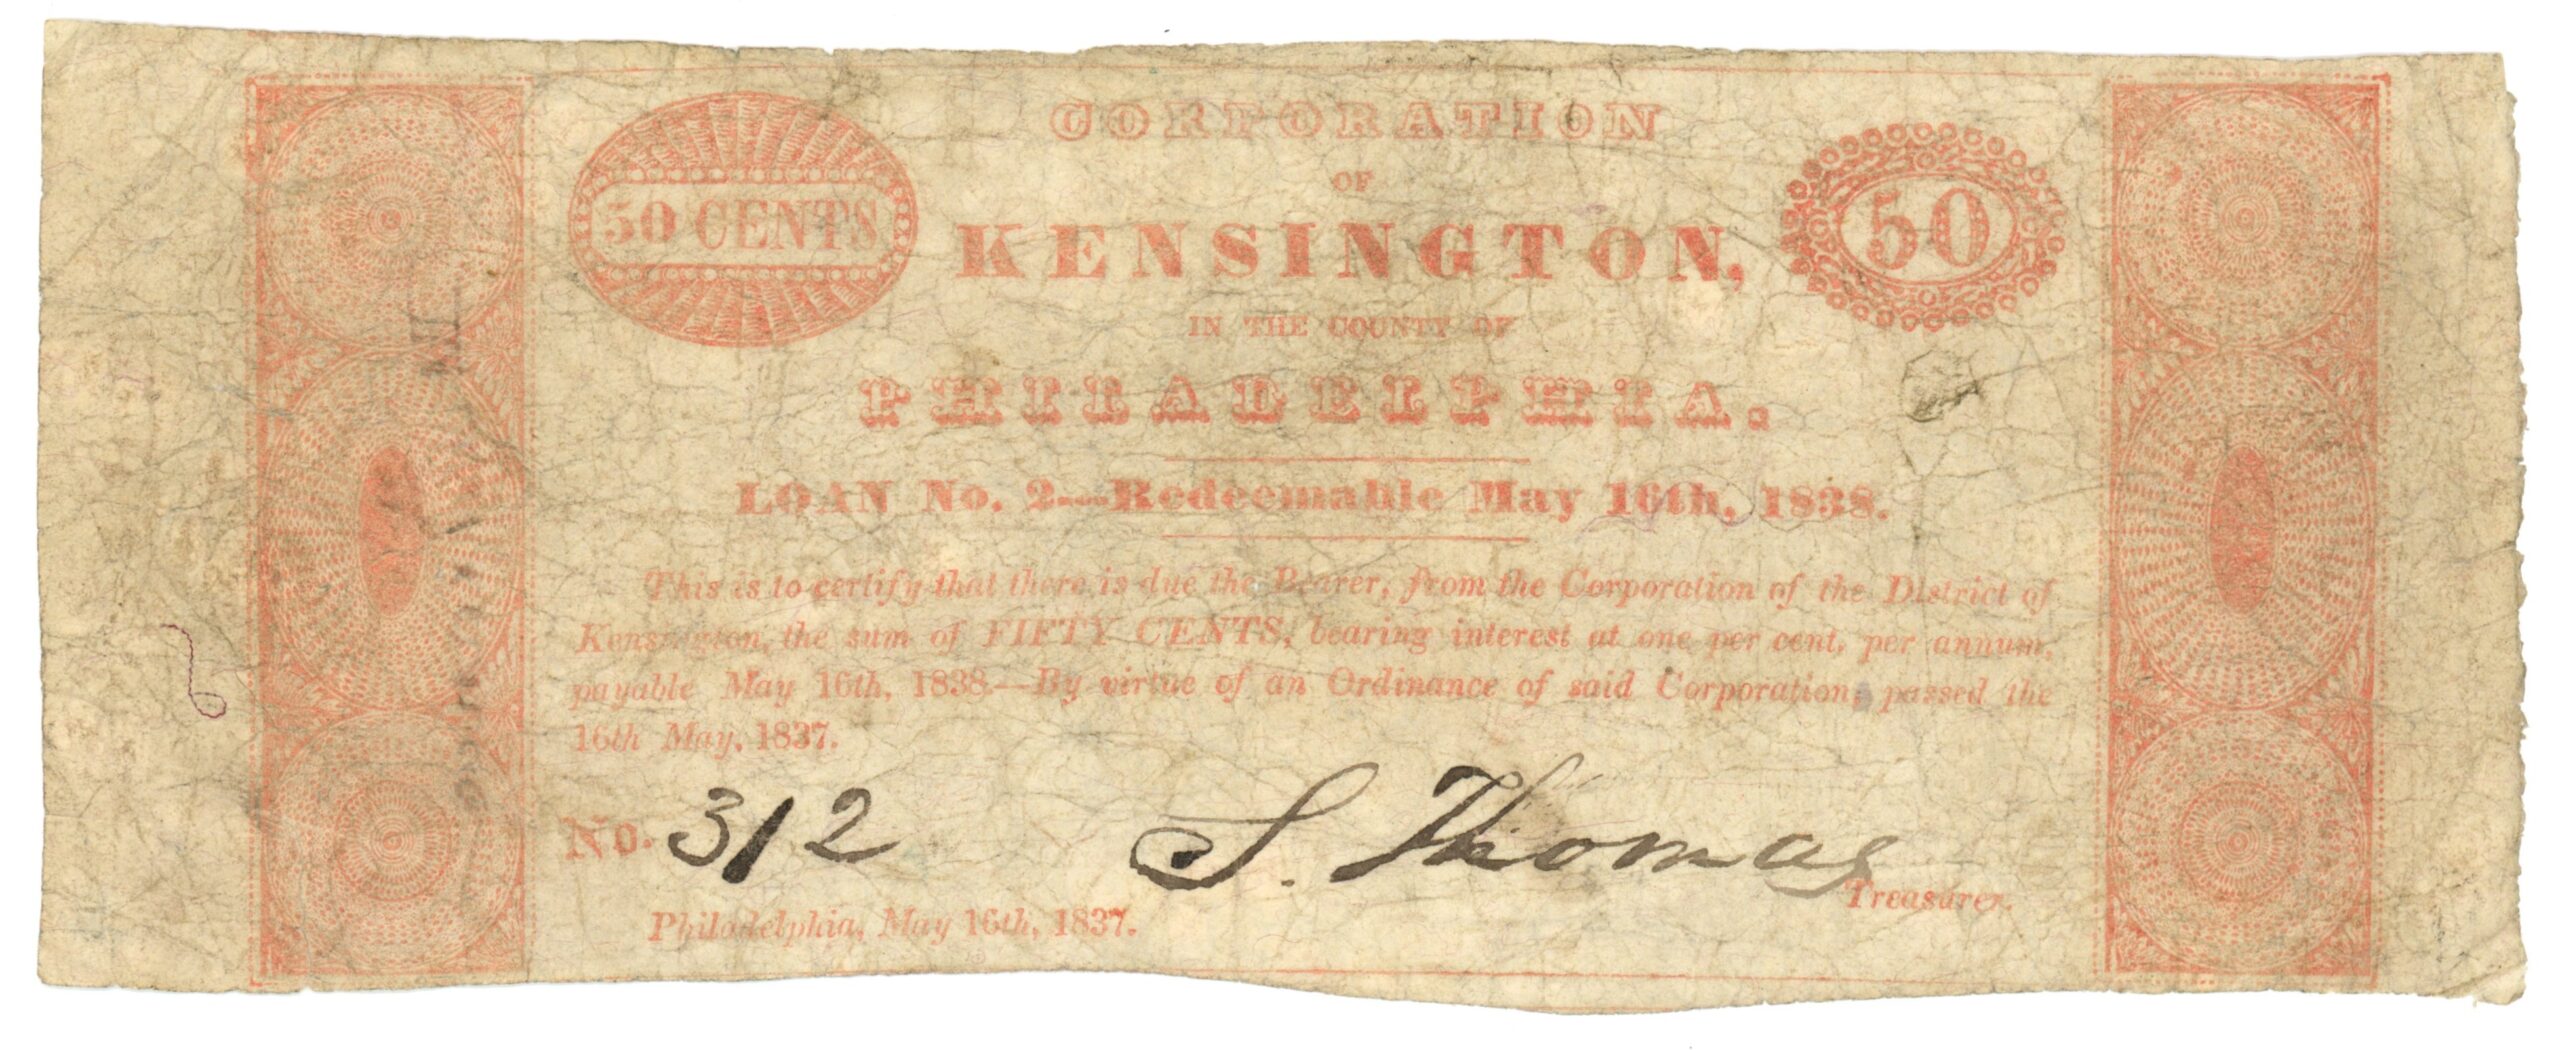 CORPORATION
50 CENTS
OF
50
KENSINGTON,
IN THE COUNTY OF
PHILADELPHIA.
LOAN No. 2—Redeemable May 16th, 1838.
This is to certify that there is due the Bearer, from the Corporation of the District of
Kensington, the sum of FIFTY CENTS, bearing interest at one per cent, per annum,
payable May 16th, 1838—By virtue of an Ordinance of said Corporation, passed the
16th May, 1837.
No. 312 S. Thomas
Treasurer.
Philadelphia, May 16th, 1837.